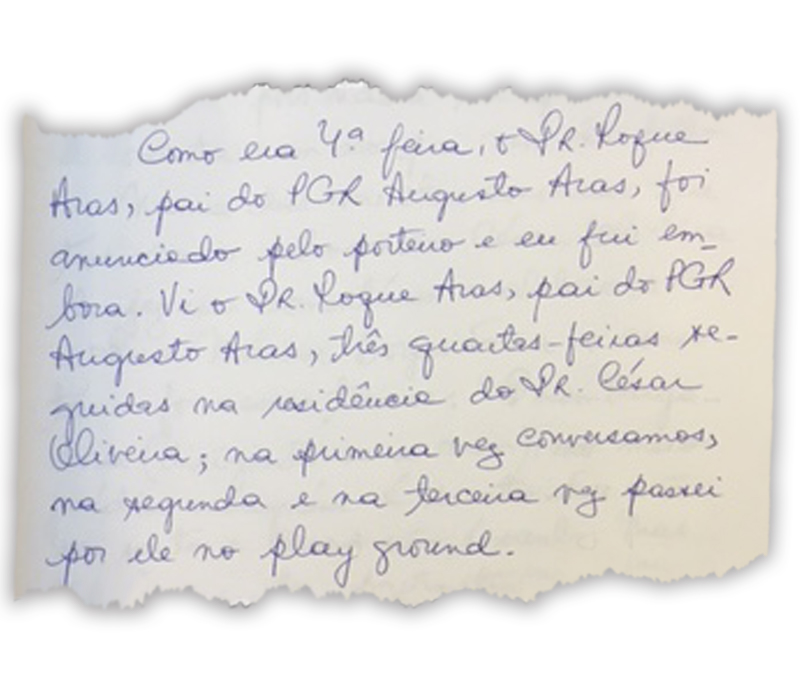 Como era 4ª feira, o Dr. Roque
Aras, pai do PGR Augusto Aras, foi
anunciado pelo porteiro e eu fui em-
bora. Vi o Dr. Roque Aras, pai do PGR
Augusto Aras, três quartas-feiras se-
guidas na residência do Dr. César
Oliveira; na primeira vez conversamos,
na segunda e na terceira vez passei
por ele no play ground.